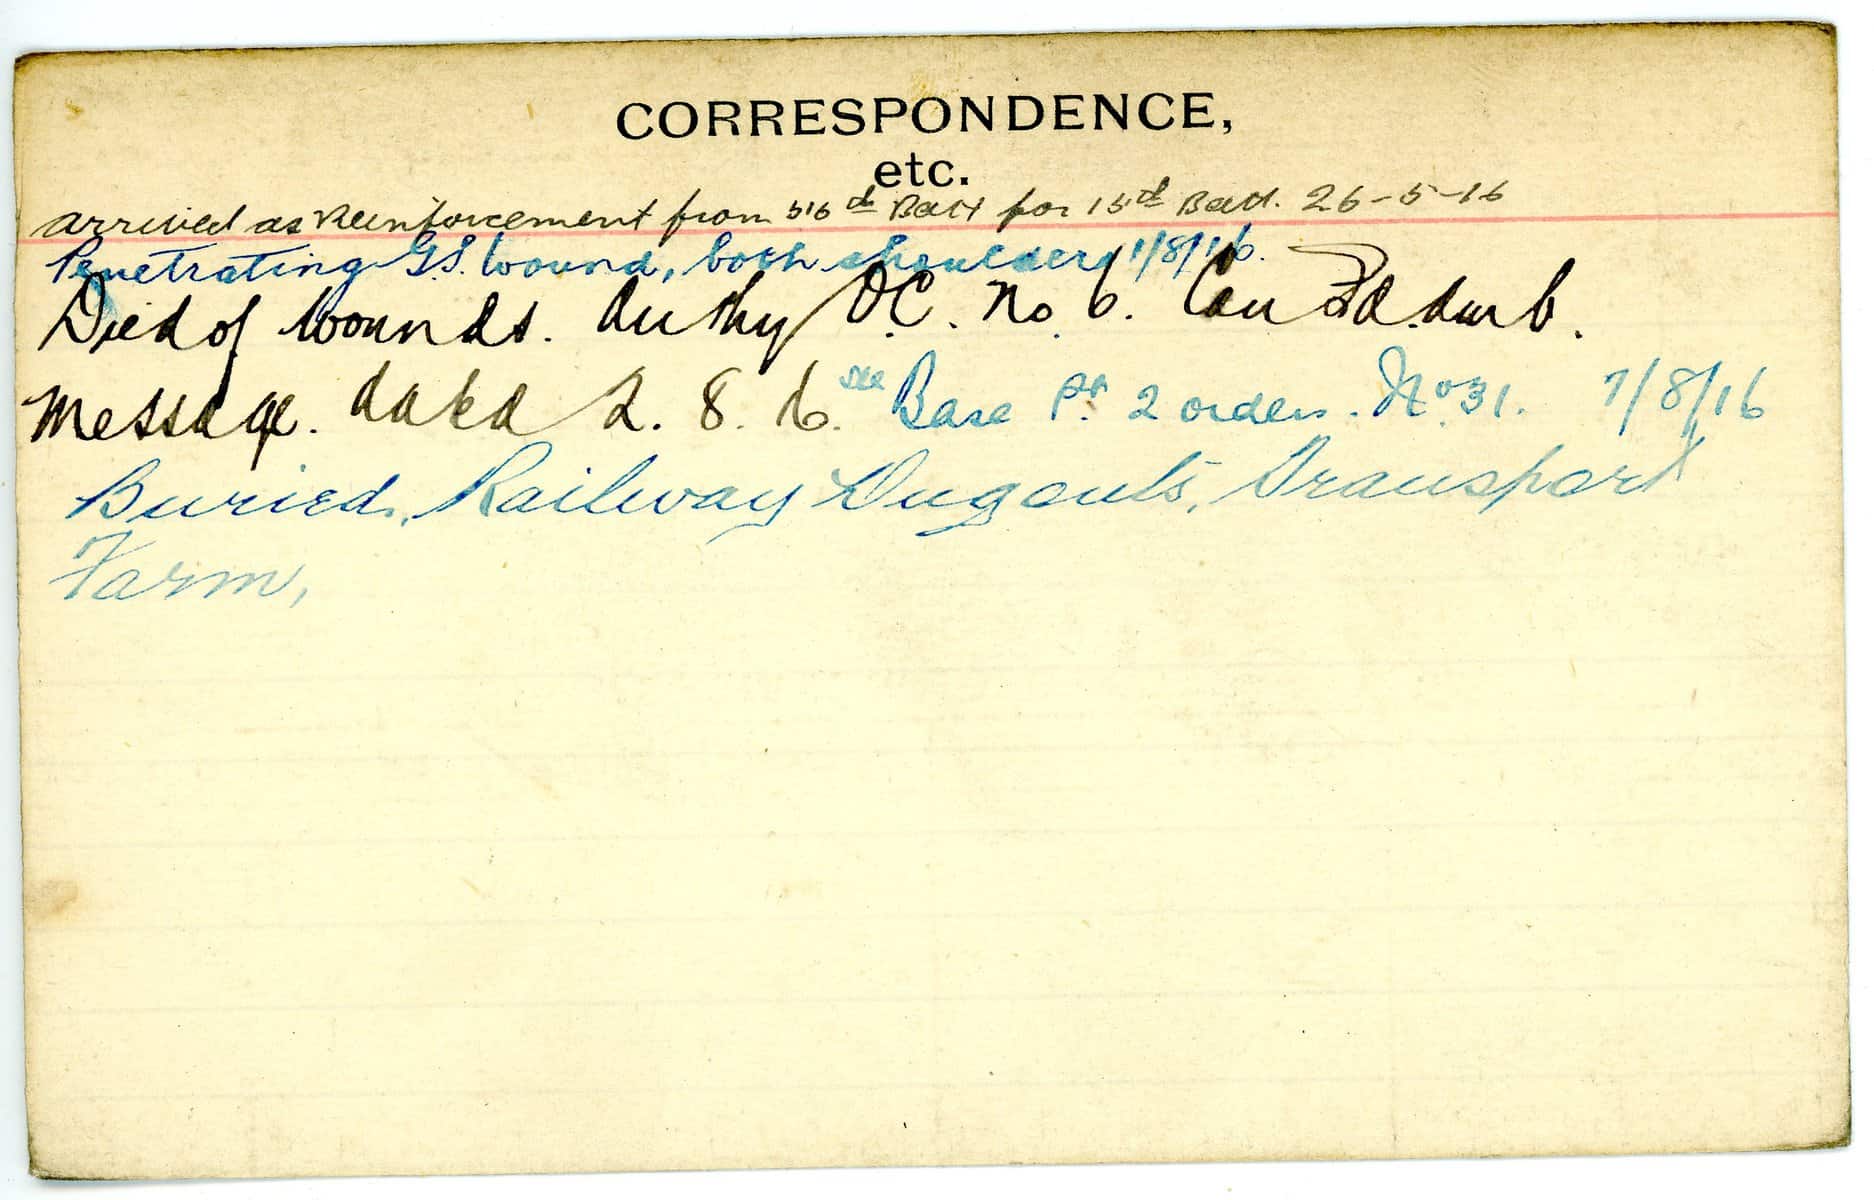 CORRESPONDENCE,
etc.
arrived as Reinforcement from Batt for 15th Batt. 26-5-16
Penetrating G.S. Wound, both shoulders 1/8/16.
Died of Wounds. Authy O.C. No. 6. Can Fd. Amb.
Message. dated 2. 8. 16. see Base Pt. 2 orders. No 31. 7/8/16
Buried, Railway Dugouts, Transport
Farm,